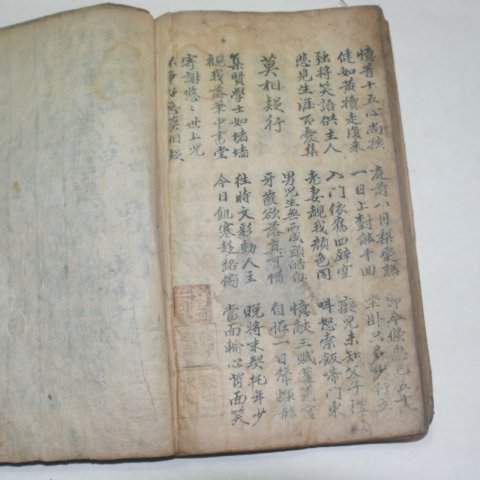 憶昔十五心尚孩 庭前八月梨棗熟 即今倏忽已五十
健如黃犢走復來 一日上樹能千回 坐臥只多少行立
強將笑語供主人 入門依舊四壁空 癡兒未知父子禮
悲見生涯百憂集 老妻覩我顏色同 叫怒索飯啼門東
莫相疑行 男兒生無所成頭皓白 憶獻三賦蓬萊宮
牙齒欲落真可惜 自怪一日聲輝赫
集賢學士如堵墻 往時文彩動人主 晚將末契托年少
觀我落筆中書堂 今日飢寒趍路傍 當面輸心背面笑
寄謝悠〻世上兒
不爭好惡莫相疑